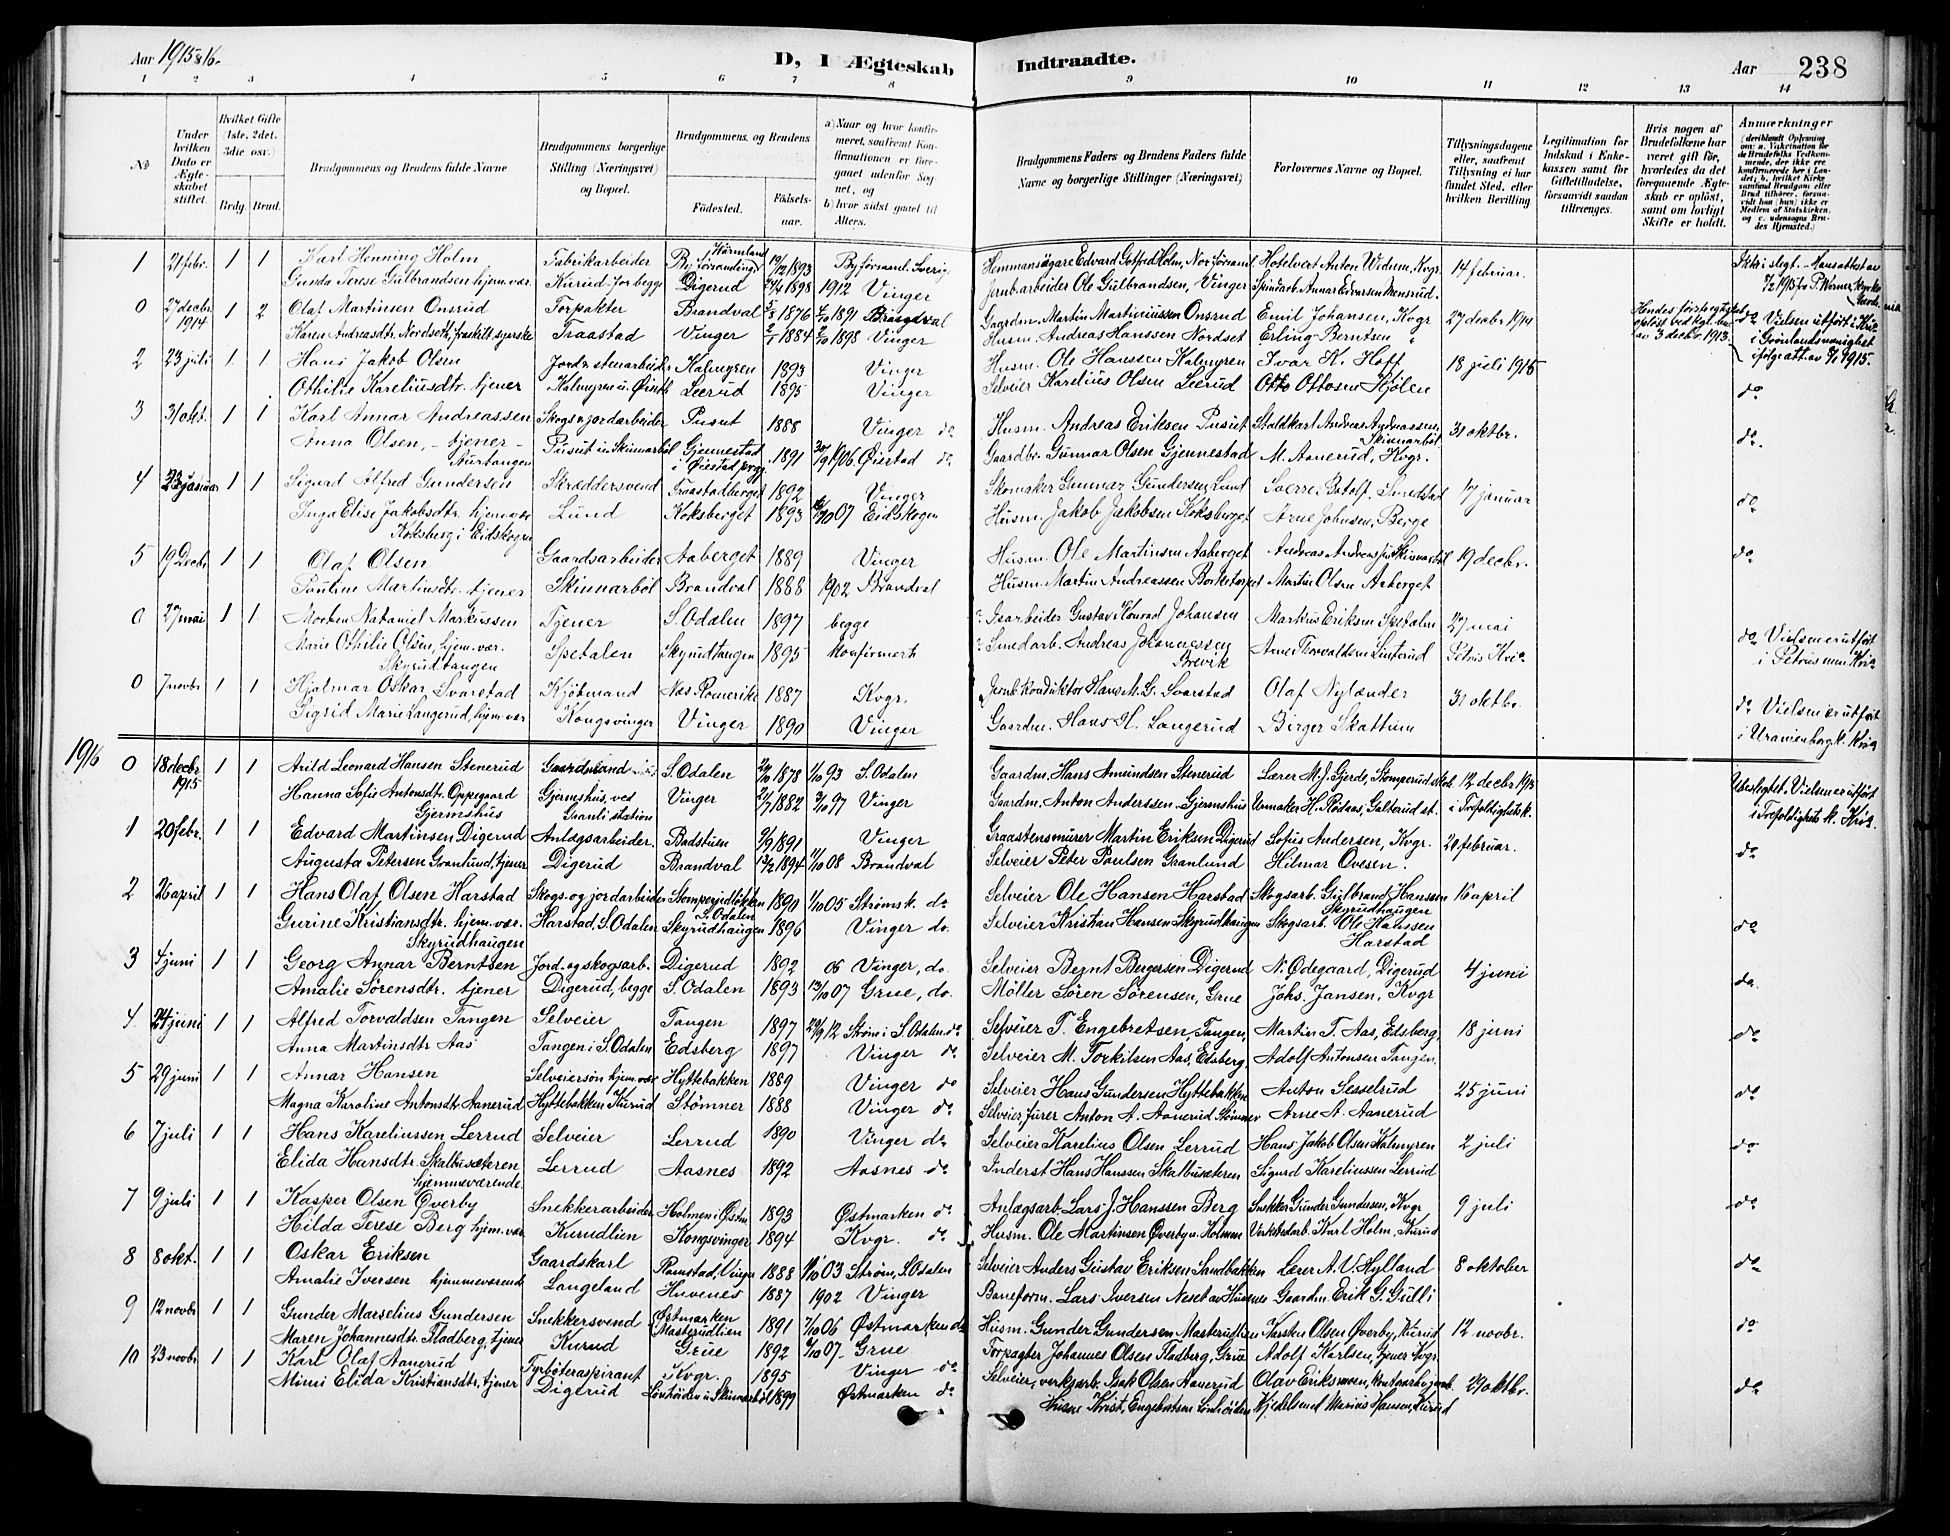 Aar 1915 & 16.
D, I Ægteskab Indtraadte.
Aar 238
1 2 3 4 5 6 7 8 9 10 11 12 13 14
№
Under hvilken Dato er Ægteskabet stiftet.
Hvilket Gifte (1ste, 2det, 3die osv.)
Brdg. Brud.
Brudgommens og Brudens fulde Navne
Brudgommens borgerlige Stilling (Næringsvei) og Bopæl.
Brudgommens og Brudens
Fødested. Fødselsaar.
a) Naar og hvor konfirmeret, saafremt Konfirmationen er foregaaet udenfor Sognet, og
b) hvor sidst gaaet til Alters.
Brudgommens Faders og Brudens Faders fulde Navne og borgerlige Stillinger (Næringsvei)
Forlovernes Navne og Bopæl.
Tillysningsdagene eller, saafremt Tillysning ei har fundet Sted, efter hvilken Bevilling
Legitimation for Indskud i Enkekassen samt for Giftetilladelse, forsaavidt saadan tiltrænges.
Hvis nogen af Brudefolkene har været gift før, hvorledes da det foregaaende Ægteskab er opløst, samt om lovligt Skifte er holdt.
Anmærkninger
1 21 febr. 1 1 Karl Henning Holm Fabrikarbeider 19/12 1893 Hemmansägare Edvard Gotfred Holm, Hotelvert Anton Widem, Kvgr. 14 februar.
Gunda Terese Gulbrandsen hjem.vær. Kurud for begge Digerud 1898 1912 Vinger Jernb.arbeider Ole Gulbrandsen, Vinger
0 27 decbr 1914 1 2 Olaf Martinsen Onsrud Forpakter Brandval 1876 1891 Brandval Gaardm. Martin Martiniussen Onsrud Emil Johansen, Kvgr 27 decbr 1914
Karen Andreasdtr. Nordseth, fraskilt syerske Traastad Vinger 1884 1898 Vinger Husm. Andreas Hanssen Nordset Erling Berntsen "
2 23 juli 1 1 Hans Jakob Olsen Jord & stenarbeider Kalmyren 1893 Vinger Husm. Ole Hanssen Kalmyren Ivar K. Hoff 18 juli 1915
Othilie Kareliusdtr. tjener Kalmyren u. Øiset Lerud 1895 Vinger Selveier Karelius Olsen Lerud Otto Ottosen Kjølen do
3 31 okt. 1 1 Karl Annar Andreassen Skogs & jordarbeider Pusut 1888 Vinger do Husm. Andreas Eriksen Pusut Staldkarl Andreas Andreassen, Skinnarbøl 31 oktbr.
Anna Olsen, - tjener - Aurtangen Pusut u. Skinnarbøl Gjennestad i Øiestad prgj. 1891 30/9 1906 Øiestad do Gaardbr. Gunnar Olsen Gjennestad M. Aanerud, Kvgr. do
4 23 januar 1 1 Sigurd Alfred Gundersen Skræddersvend Traastadberget 1892 Vinger Skomaker Gunnar Gundersen Lund Sverre Botolf Smedstad 17 januar
Inga Elise Jakobsdtr. hjem.vær Koksberg i Eidskogen Lund Koksberget 1893 07 Eidskogen Husm. Jakob Jakobsen Koksberget Arne Johnsen, Berge do
5 19 Decbr 1 1 Olaf Olsen Gaardsarbeider Aaberget 1889 Vinger Husm. Ole Martinsen Aaberget Andreas Andreassen Skinnarbøl 19 decbr.
Pauline Martinsdtr. tjener Skinnarbøl Brandval 1888 1902 Brandval Husm. Martin Andreassen Borketorpet Martin Olsen Aaberget do
0 27 mai 1 1 Morten Nataniel Markussen Tjener S. Odalen 1897 begge Isarbeider Gustav Konrad Johansen Markus Eriksen Spetalen 27 mai
Marie Othilie Olsen, hjem.vær. Skyrudtangen Spetalen Skyrudtangen 1895 konfirmert Smedarb. Andreas Johannessen Brevik Arne Torvaldsen Linterud Petrus Kria do Vielsen er utført i Petrus men. Kria
0 7 novbr 1 1 Hjalmar Oskar Svarstad Kjøbmand Næs Romerike 1887 Kvgr. Jernb.konduktør Hans M. G. Svarstad Olaf Nylænder 31 oktbr.
Sigrid Marie Langerud, hjem.vær Kongsvinger Vinger 1890 Vinger Gaardm. Hans H. Langerud Birger Skattum do Vielsen er utført i Uranienborg k. Kria
1916
0 18 decbr 1915 1 1 Arild Leonard Hansen Stenerud Gaardmand S. Odalen 1878 1/10 93 S. Odalen Gaardm. Hans Amundsen Stenerud Lærer M. J. Gjerde, Stomperudskole 12 decbr 1915
Hanna Sofie Antonsdtr. Oppegaard Gjermshus Gjermshus, ved Granli station Vinger 1882 3/10 97 Vinger Gaardm. Anton Anderssen Gjermshus Urmaker H. Rødaas, Galterud st. i Trefoldigheds k. Ubeslegtet. Vielsen er utført i Trefoldigheds k. Kria.
1 20 febr. 1 1 Edvard Martinsen Digerud Anlægsarbeider. Badstuen 1891 Vinger Graastensmurer Martin Eriksen Digerud Sofus Andersen, Kvgr. 20 februar.
Augusta Petersen Granlund, tjener Digerud Brandval 1894 08 Brandval Selveier Peter Paulsen Granlund Hilmar Ovesen. do
2 26 april 1 1 Hans Olaf Olsen Harstad Skogs- og jordarbeider Stomperudløkken S. Odalen 1890 1/10 05 Strømsk. do Selveier Ole Hansen Harstad Skogsarb. Gulbrand Hanssen Skyrudhaugen 16 april
Gurine Kristiansdtr. hjem.vær. Skyrudhaugen Harstad, S. Odalen Skyrudhaugen 1896 Vinger do. Selveier Kristian Hansen Skyrudhaugen Skogsarb. Ole Hanssen Harstad do
3 4 juni 1 1 Georg Annar Berntsen Jord. og skogsarb. Digerud 1892 06 Vinger, do. Selveier Bernt Bergersen Digerud N. Ødegaard, Digerud 4 juni
Amalie Sørensdtr. tjener Digerud, begge S. Odalen 1893 13/10 07 Grue, do. Møller Søren Sørensen, Grue Johs. Jansen, Kvgr do
4. 24 juni 1 1 Alfred Torvaldsen Tangen Selveier Tangen 1897 12 Strøm i S. Odalen do Selveier T. Engebretsen, Tangen, Martin T. Aas, Edsberg, 18 juni
Anna Martinsdtr Aas Tangen i S. Odalen Edsberg 1897 Vinger do Selveier M. Torkilsen Aas, Edsberg, Adolf Antonsen Tangen. do
5 29 juni 1 1 Annar Hansen Selveiersøn hjem.vær Hyttebakken 1889 Vinger do Selveier Hans Gundersen Hyttebakken Anton Sesselrud 25 juni
Magna Karoline Antonsdtr Aanerud Hyttebakken Kurud Stømner 1888 Vinger do Selveier, furer Anton A. Aanerud Stømner Arne A. Aanerud do
6 7 juli 1 1 Hans Kareliussen Lerrud Selveier Lerrud 1890 Vinger do Selveier Karelius Olsen Lerrud Hans Jakob Olsen Kalmyren 2 juli
Elida Hansdtr. Skalbusæteren, hjemmeværende. Lerrud Aasnes 1892 Aasnes do Inderst Hans Hanssen Skalbusæteren Sigurd Kareliussen Lerrud do
7 9 juli 1 1 Kasper Olsen Øverby Snekkerarbeider Holmen i Østm 1893 Østmarken do Anlægsarb. Lars J. Hanssen Berg Snekker Gunder Gundersen, Kvgr 9 juli
Hilda Terese Berg hjem.vær Kurudlien Kongsvinger 1894 Kvgr. do Husm. Ole Martinsen Øverby u. Holmen Verkstedarb. Karl Holm, Kurud do
8 8 okt. 1 1 Oskar Eriksen Gaardskarl Ramstad, Vinger 1888 1/10 03 Strøm, S. Odalen Selveier Anders Gustav Eriksen Sandbakken Lærer A. V. Hylland 8 oktober
Amalie Iversen hjemmeværende Langeland Huvenes 1887 1902 Vinger Baneform. Lars Iversen Neset av Huvenes Gaardm Erik G. Gulli do
9 12 novbr 1 1 Gunder Marselius Gundersen Snekkersvend Østmarken Masterudlien 1891 7/10 06 Østmarken do Husm. Gunder Gundersen Masterudlien Karsten Olsen Øverby, Kurud 12 novbr.
Maren Johannesdtr. Fladberg, tjener Kurud Grue 1892 07 Grue Forpagter Johannes Olsen Fladberg, Grue Adolf Karlsen, tjener Kvgr. do
10 23 novbr 1 1 Karl Olaf Aanerud Fyrbøteraspirant Kvgr. 1895 Vinger do Selveier, verksarb. Isak Olsen Aanerud Olav Eriksmoen, 29 oktbr.
Mimi Elida Kristiansdtr, tjener Digerud 1899 Østmarken do Husm Krist. Engebretsen Lønhøiden Kjedelsmed Marius Hansen, Kurud do